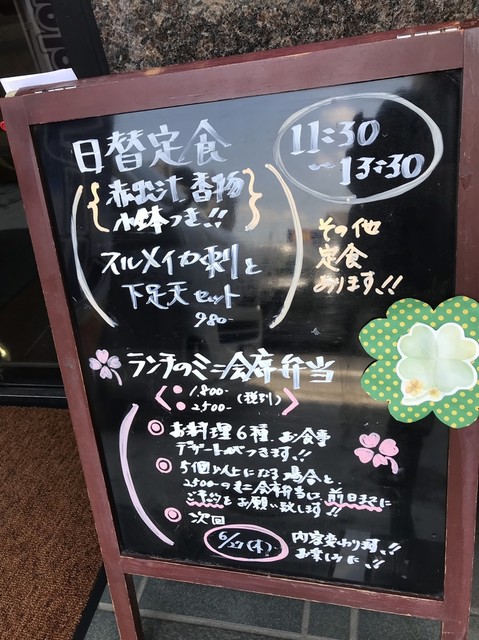 日替定食
11:30
~13:30
赤出汁、香物
小鉢つき!!
スルメイカ刺と
下足天セット
980-
その他
定食
あります!!
ランチのミニ会席弁当
1,800-
2500- (税別)
お料理6種、お食事
デザートがつきます!!
5個以上になる場合と、
2500-のミニ会席弁当は前日までに
ご予約をお願い致します!!
次回
6/27(木)
内容変わります!!
お楽しみに!!